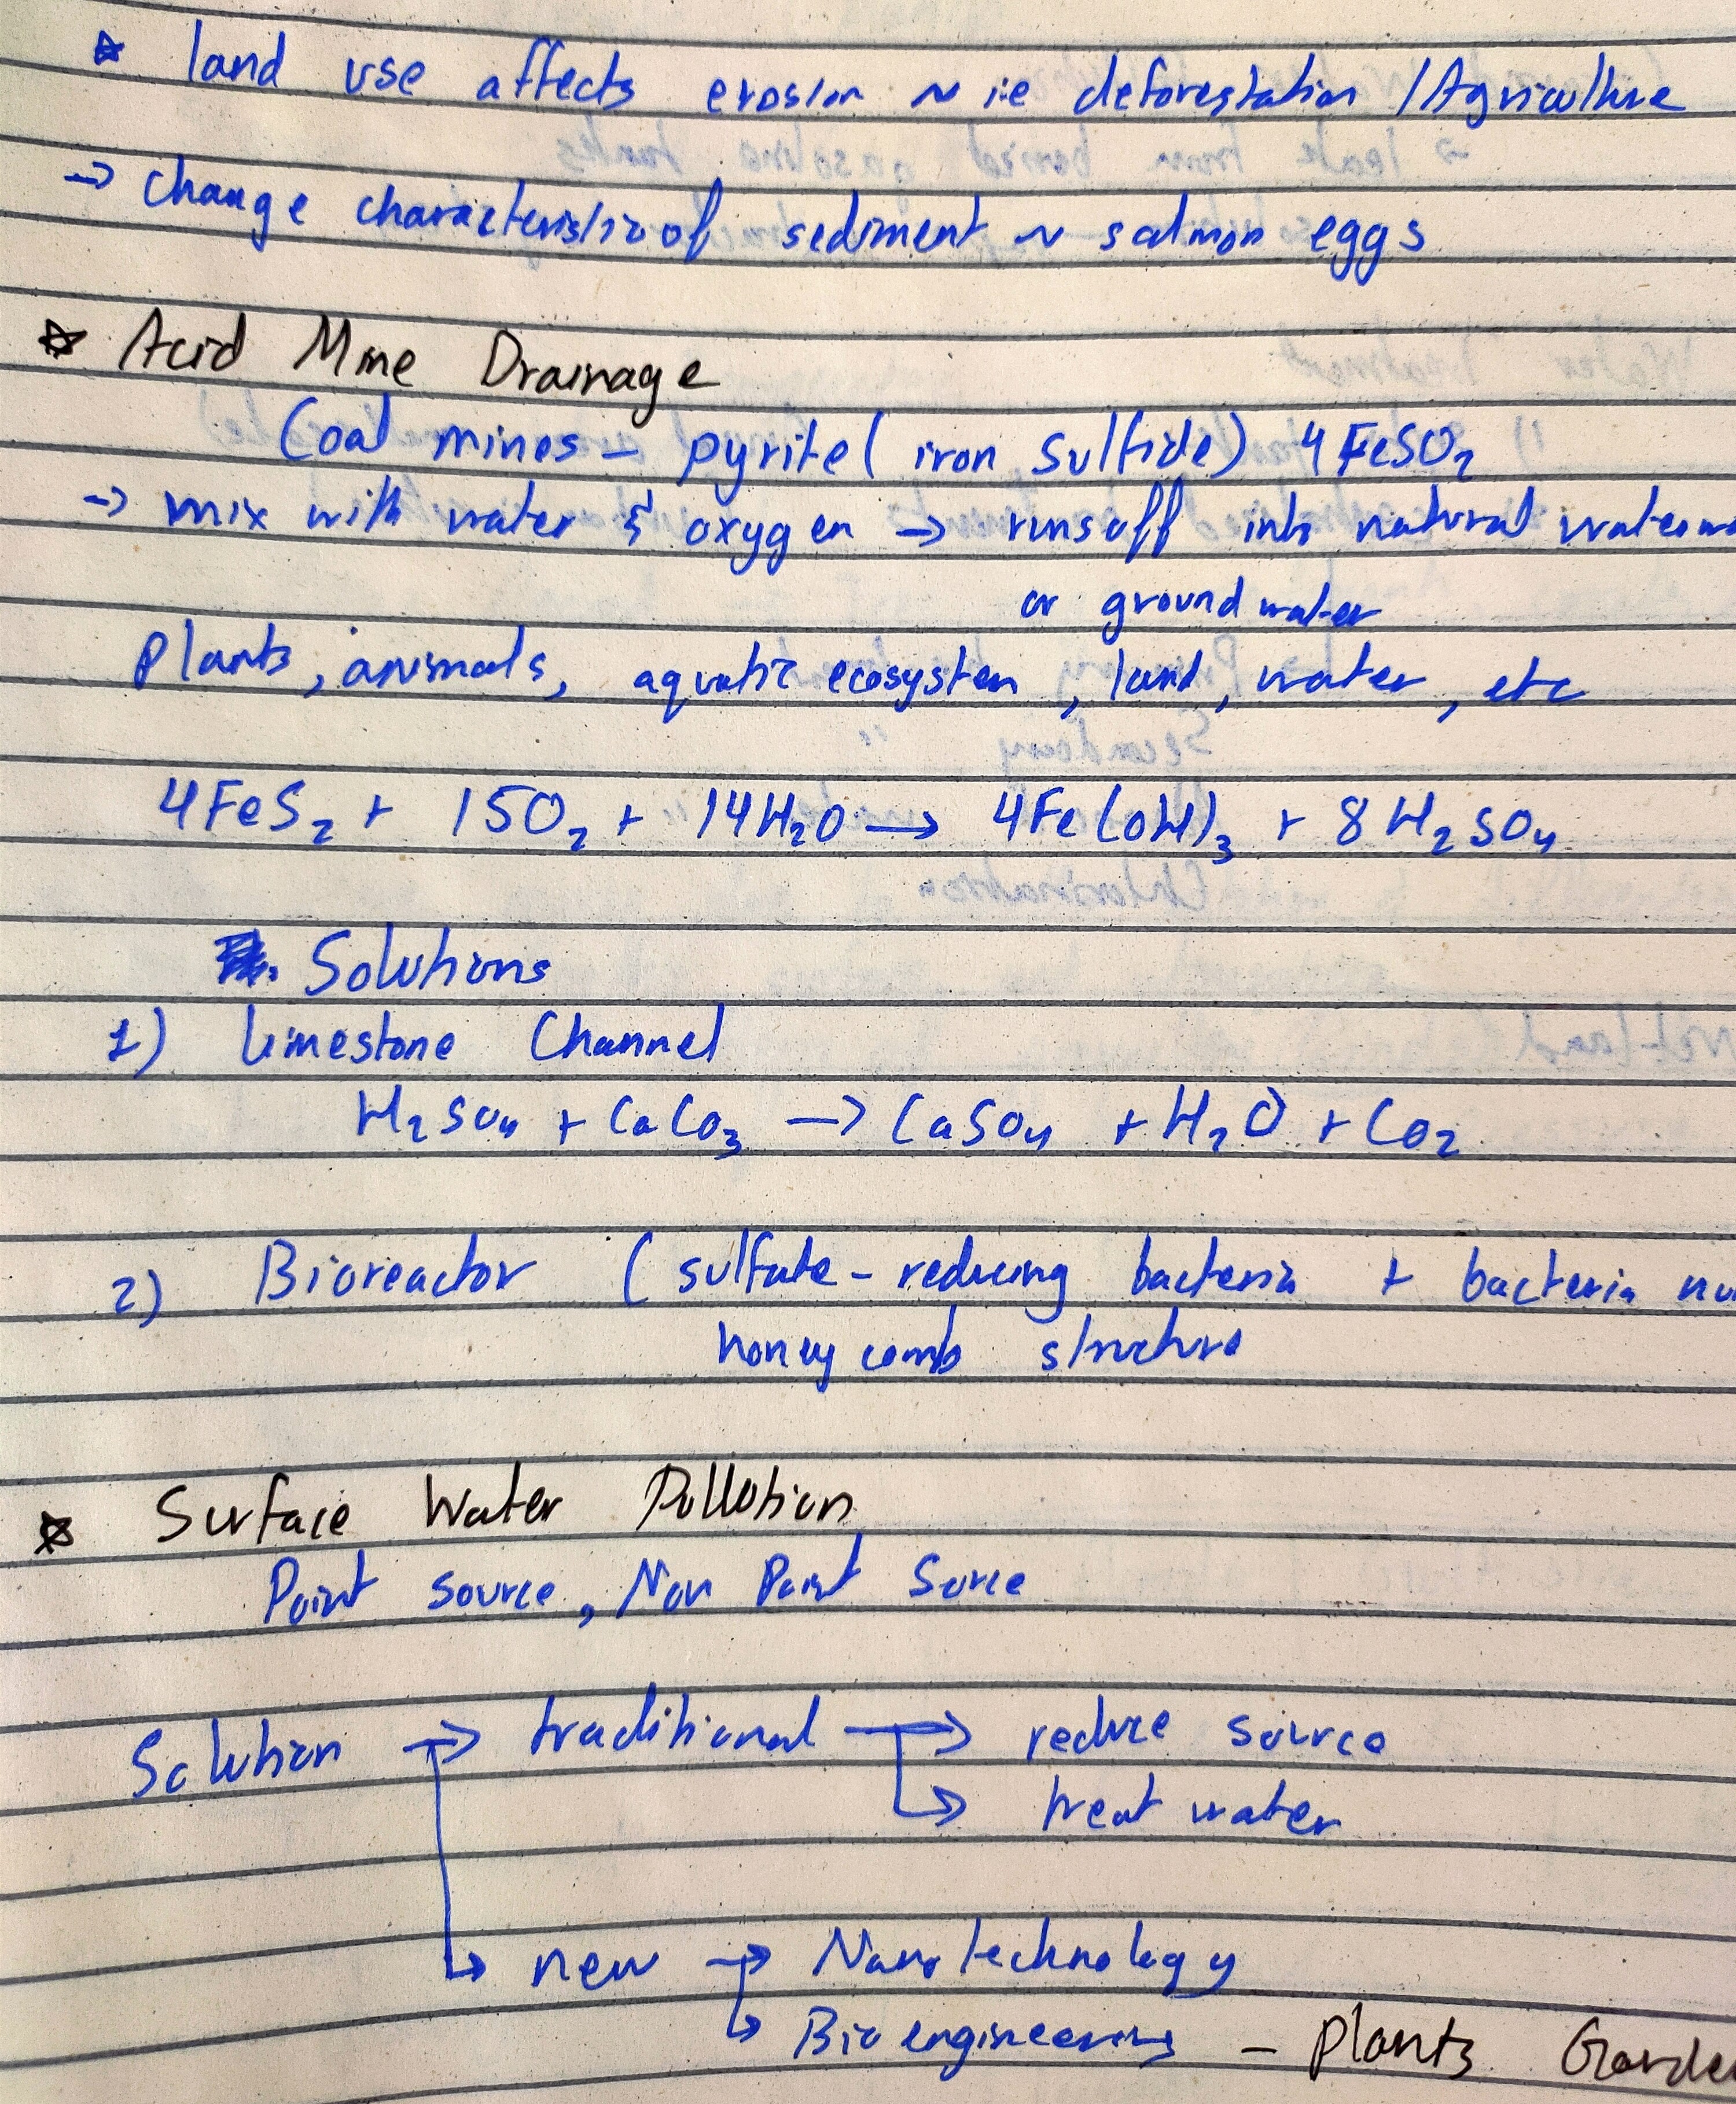 ☆ land use affects erosion ~ i.e deforestation / Agriculture
→ change characteristic of sediment ~ salmon eggs
☆ Acid Mine Drainage
Coal mines - pyrite (iron sulfide) 4FeSO₂
→ mix with water & oxygen → runs off into natural
or ground water
Plants, animals, aquatic ecosystem, land, water, etc
4FeS₂ + 15O₂ + 14H₂O → 4Fe(OH)₃ + 8H₂SO₄
Solutions
1) Limestone Channel
H₂SO₄ + CaCO₃ → CaSO₄ + H₂O + CO₂
2) Bioreactor (sulfate-reducing bacteria + bacteria
honey comb structure
☆ Surface Water Pollution
Point source, Non Point Sorce
Solution → traditional → reduce source
↳ treat water
↳ new → Nanotechnology
↳ Bioengineering - Plants